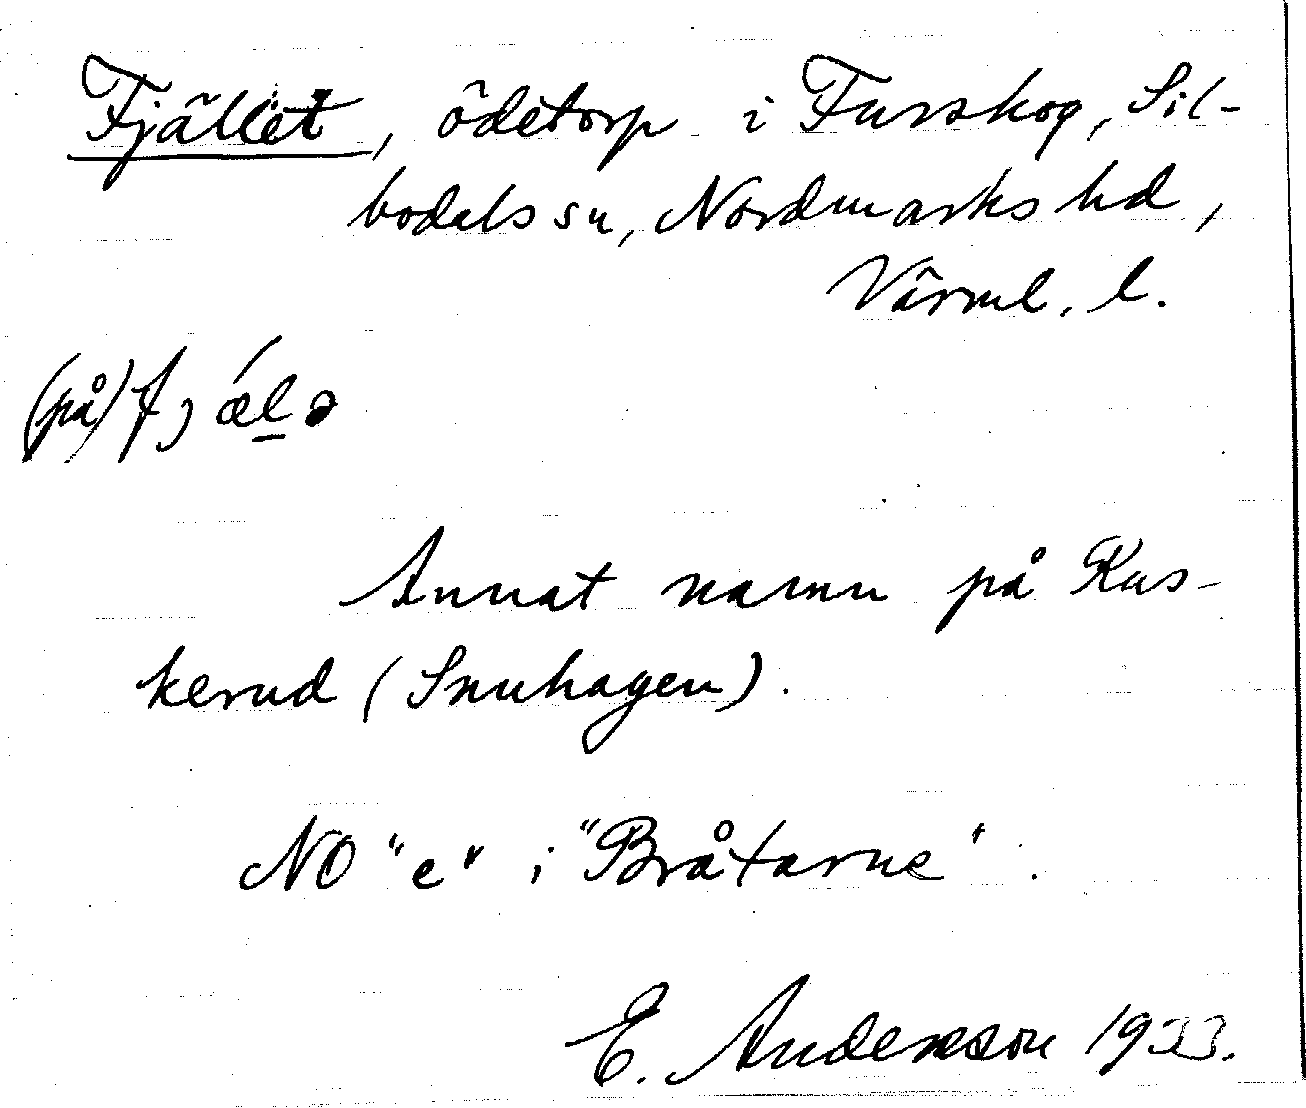 Fjället, ödetorp i Furskog, Sil-
bodals sn, Nordmarks hd,
Värml. l.
(på) fjǽlə
Annat namn på Kas-
kerud (Snuhagen).
NO "e" i "Bråtarne".
E. Andersson 1933.